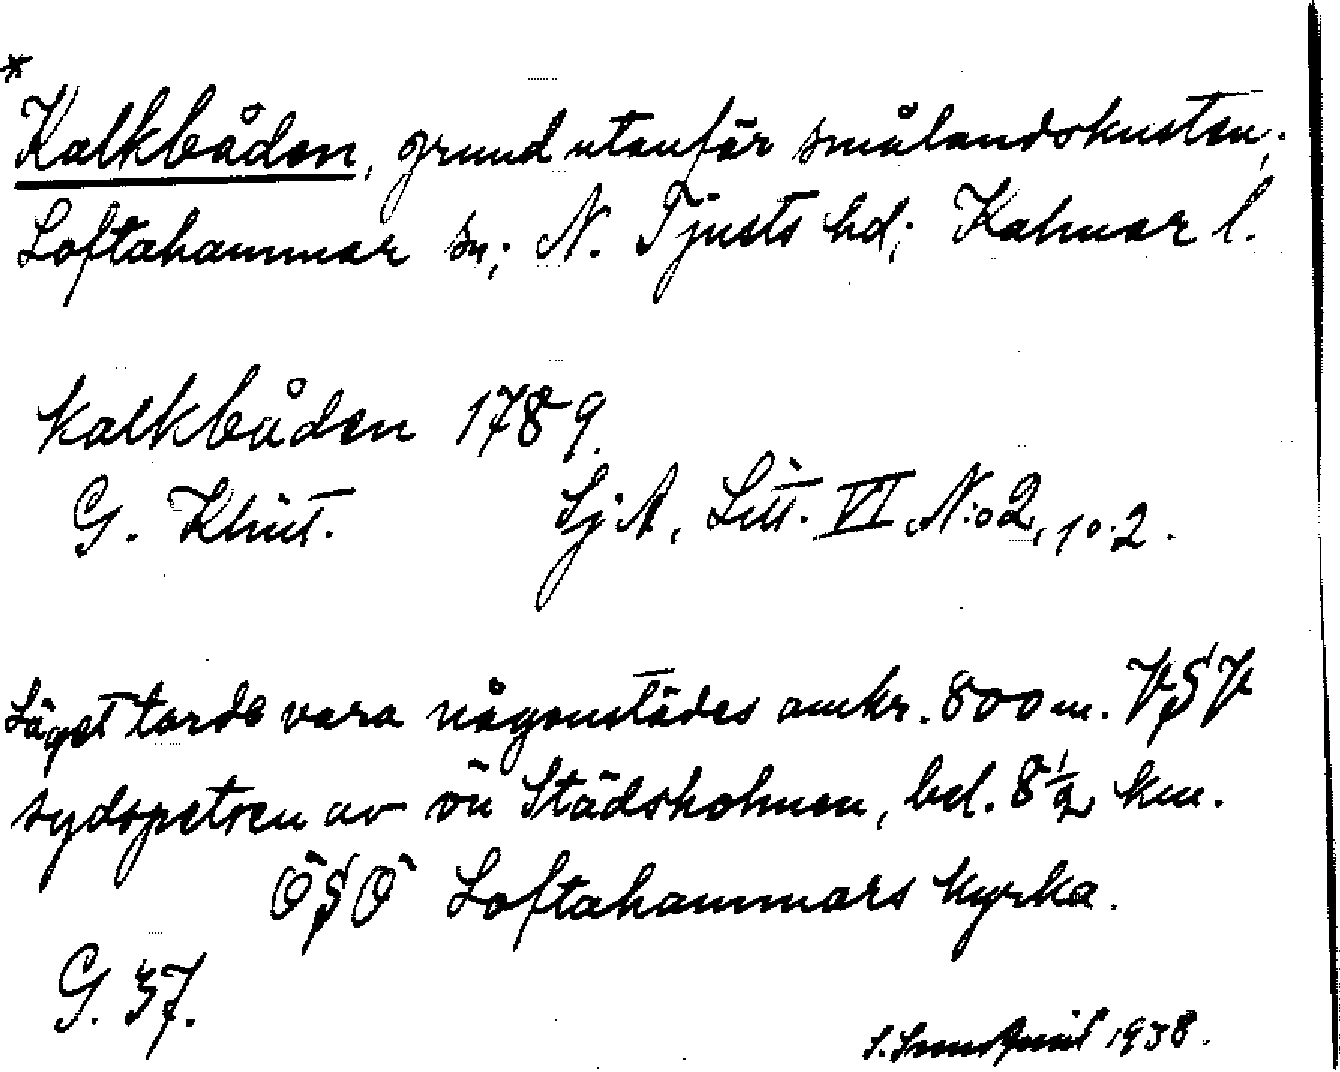 *
Kalkbåden, grund utanför smålandskusten;
Loftahammar sn; N. Tjusts hd; Kalmar l.
Kalkbåden 1789.
G. Klint. SjA, Litt. VI N:o 2, 10.2.
Läget torde vara någonstädes omkr. 800 m. VSV
sydspetsen av ön Städsholmen, bel. 8 1/2 km.
ÖSÖ Loftahammars kyrka.
G. 37.
1938.